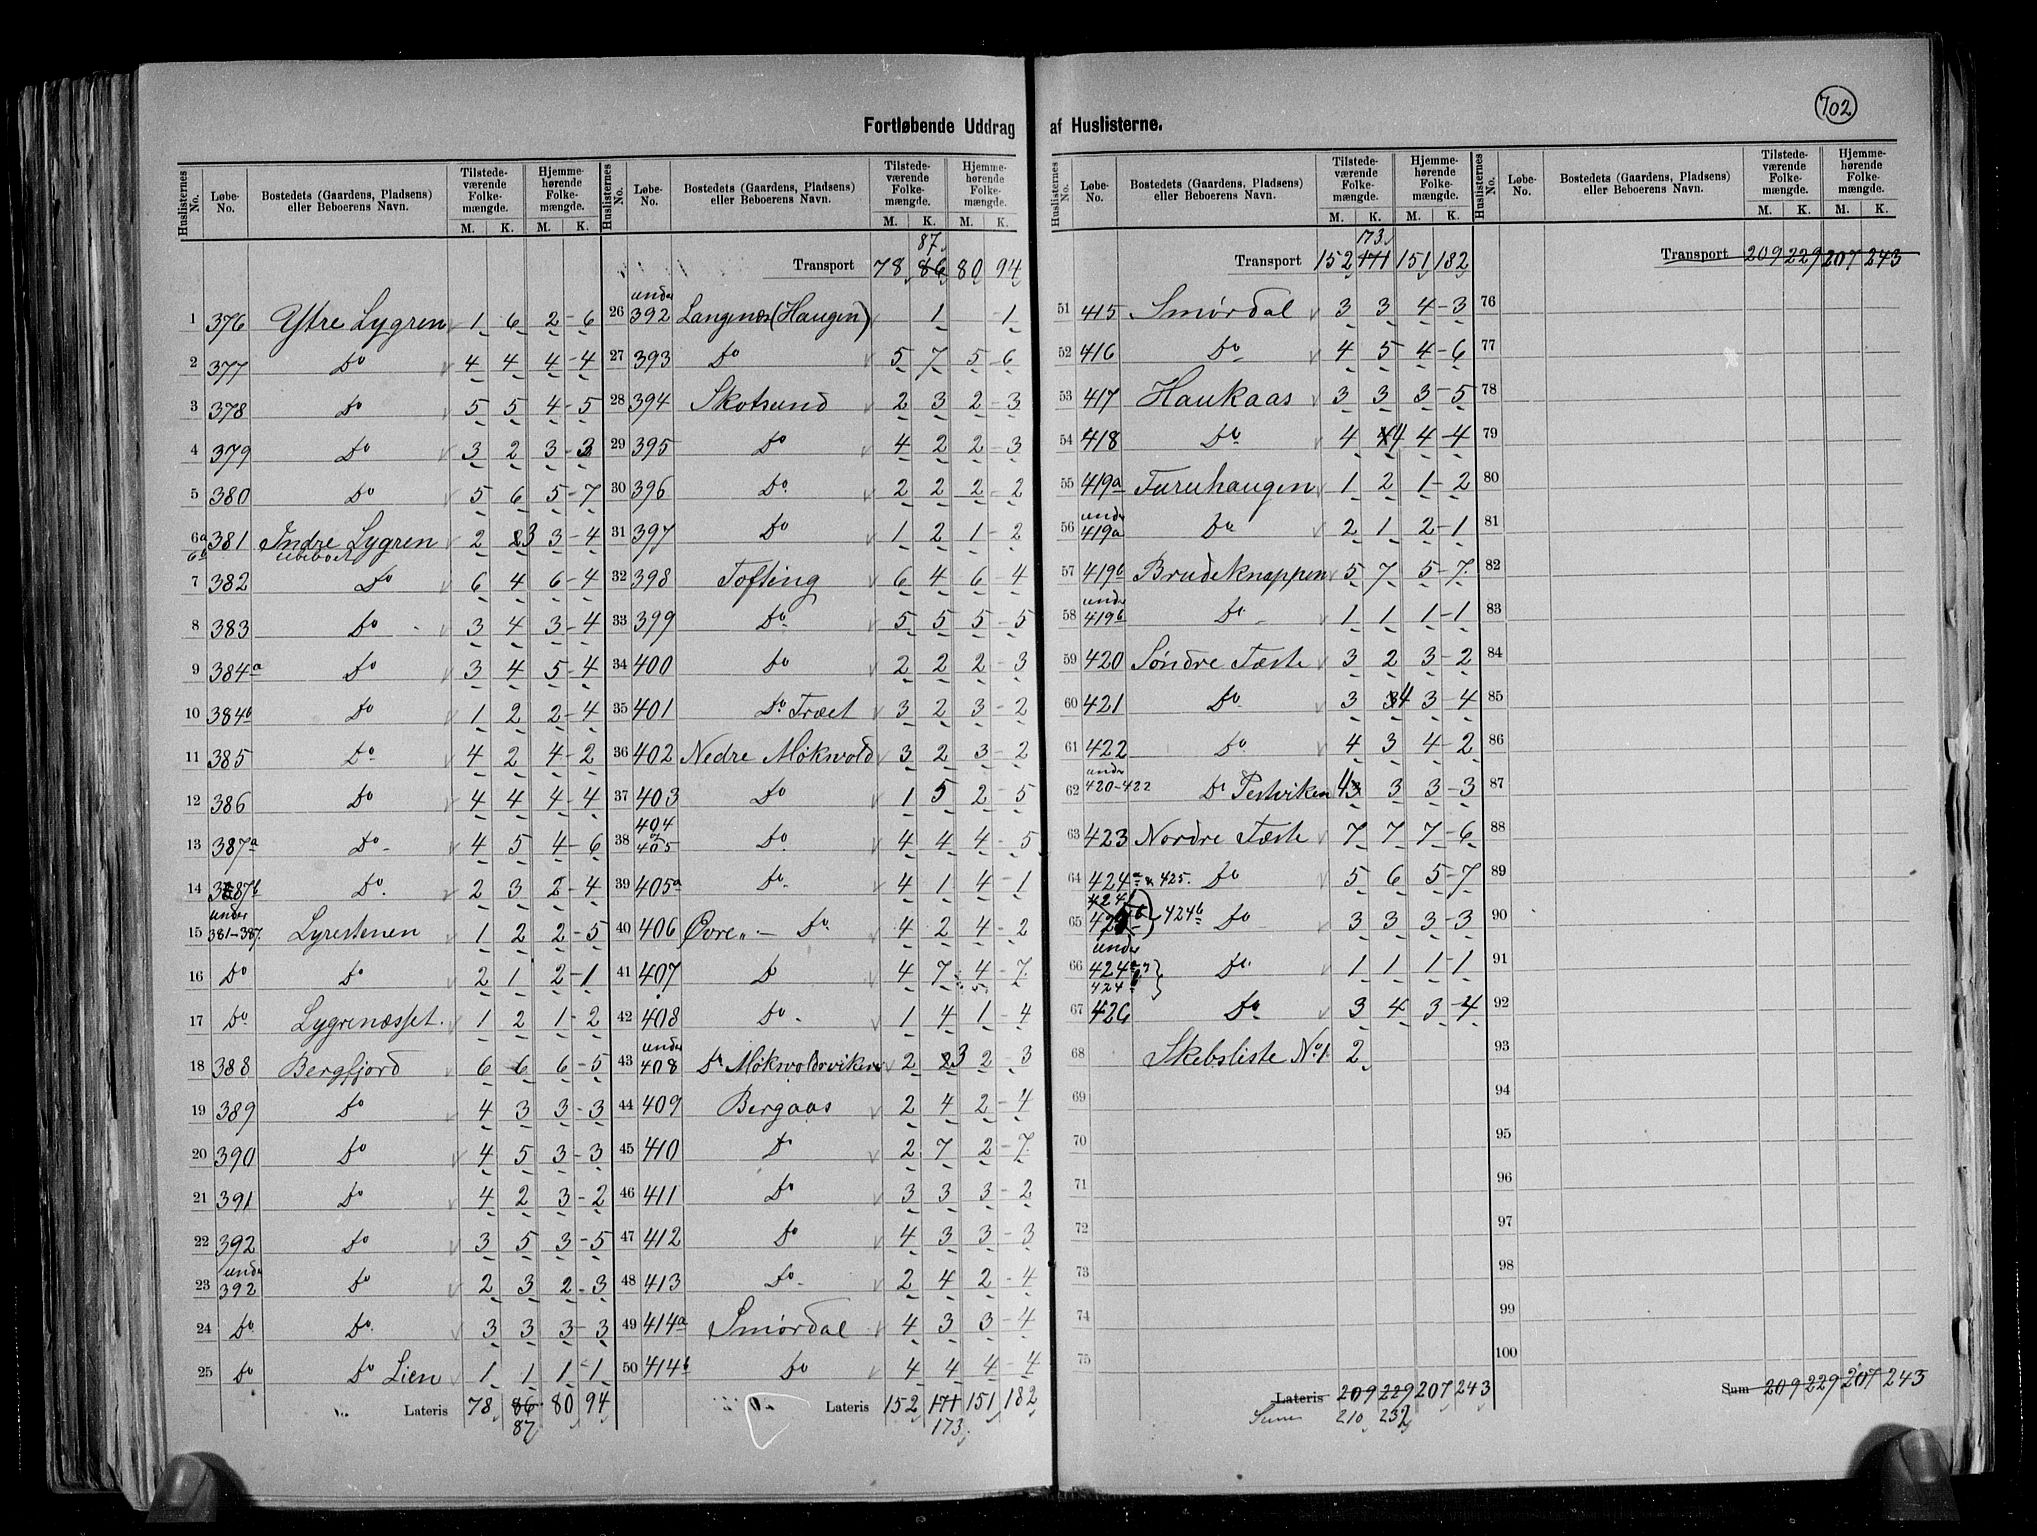 702
Fortløbende Uddrag af Huslisternes.
Huslisternes No. Løbe-No. Bostedets (Gaardens, Pladsens) eller Beboerens Navn. Tilstedeværende Folkemængde. Hjemmehørende Folkemængde.
M. K. M. K.
1 376 Ytre Lygren 1 6 2-6
2 377 Do 4 4 4-4
3 378 Do 5 5 4-5
4 379 Do 3 2 3-3
5 380 Do 5 6 5-7
6a 381 Indre Lygren 2 3 3-4
6b ubeboet
7 382 Do 6 4 6-4
8 383 Do 3 4 3-4
9 384a Do 3 4 5-4
10 384b Do 1 2 2-4
11 385 Do 4 2 4-2
12 386 Do 4 4 4-4
13 387a Do 4 5 4-6
14 387b Do 2 3 2-4
15 under 381-387 Lyrestenen 1 2 2-5
16 Do Do 2 1 2-1
17 Do Lygrenæsset 1 2 1-2
18 388 Bergfjord 6 6 6-5
19 389 Do 4 3 3-3
20 390 Do 4 5 3-3
21 391 Do 4 2 3-2
22 392 Do 3 5 3-5
23 under 392 Do 2 3 2-3
24 Do Do 3 3 3-3
25 Do Do Lien 1 1 1-1
Lateris 78 86 80 94
87
Huslisternes No. Løbe-No. Bostedets (Gaardens, Pladsens) eller Beboerens Navn. Tilstedeværende Folkemængde. Hjemmehørende Folkemængde.
M. K. M. K.
87
Transport 78 86 80 94
26 under 392 Langenes (Haugen) 1 -1
27 393 Do 5 7 5-6
28 394 Skotsund 2 3 2-3
29 395 Do 4 2 2-3
30 396 Do 2 2 2-2
31 397 Do 1 2 1-2
32 398 Tofting 6 4 6-4
33 399 Do 5 5 5-5
34 400 Do 2 2 2-3
35 401 Do Træet 3 2 3-2
36 402 Nedre Møkvold 3 2 3-2
37 403 Do 1 5 2-5
38 404 405 Do 4 4 4-5
39 405a Do 4 1 4-1
40 406 Øvre „ - Do 4 2 4-2
41 407 D 4 7 4-7
42 408 Do 1 4 1-4
43 under 408 Do Møkvoldsviken 2 3 2-3
44 409 Bergaas 2 4 2-4
45 410 Do 2 7 2-7
46 411 Do 3 3 3-2
47 412 Do 4 3 3-3
48 413 Do 2 4 2-4
49 414a Smørdal 4 3 3-4
50 414b Do 4 4 4-4
Lateris 152 171 151 182
173
Huslisternes No. Løbe-No. Bostedets (Gaardens, Pladsens) eller Beboerens Navn. Tilstedeværende Folkemængde. Hjemmehørende Folkemængde.
M. K. M. K.
173
Transport 152 171 151 182
51 415 Smørdal 3 3 4-3
52 416 Do 4 5 4-6
53 417 Haukaas 3 3 3-5
54 418 Do 4 4 4-4
55 419a Furuhaugen 1 2 1-2
56 under 419a Do 2 1 2-1
57 419b Brudeknappen 5 7 5-7
58 under 419b Do 1 1 1-1
59 420 Søndre Tæste 3 2 3-2
60 421 Do 3 4 3-4
61 422 Do 4 3 4-2
62 under 420-422 Do Pestviken 4 3 3-3
63 423 Nordre Tæste 7 7 7-6
64 424a & 425. Do 5 6 5-7
65 424b Do 3 3 3-3
66 under 424a Do 1 1 1-1
67 426 Do 3 4 3-4
68 Skebsliste No 1 2
69
70
71
72
73
74
75
Lateris 209 229 207 243
Sum 210 232
Huslisternes No. Løbe-No. Bostedets (Gaardens, Pladsens) eller Beboerens Navn. Tilstedeværende Folkemængde. Hjemmehørende Folkemængde.
M. K. M. K.
Transport 209 229 207 243
76
77
78
79
80
81
82
83
84
85
86
87
88
89
90
91
92
93
94
95
96
97
98
99
100
Sum 209 229 207 243